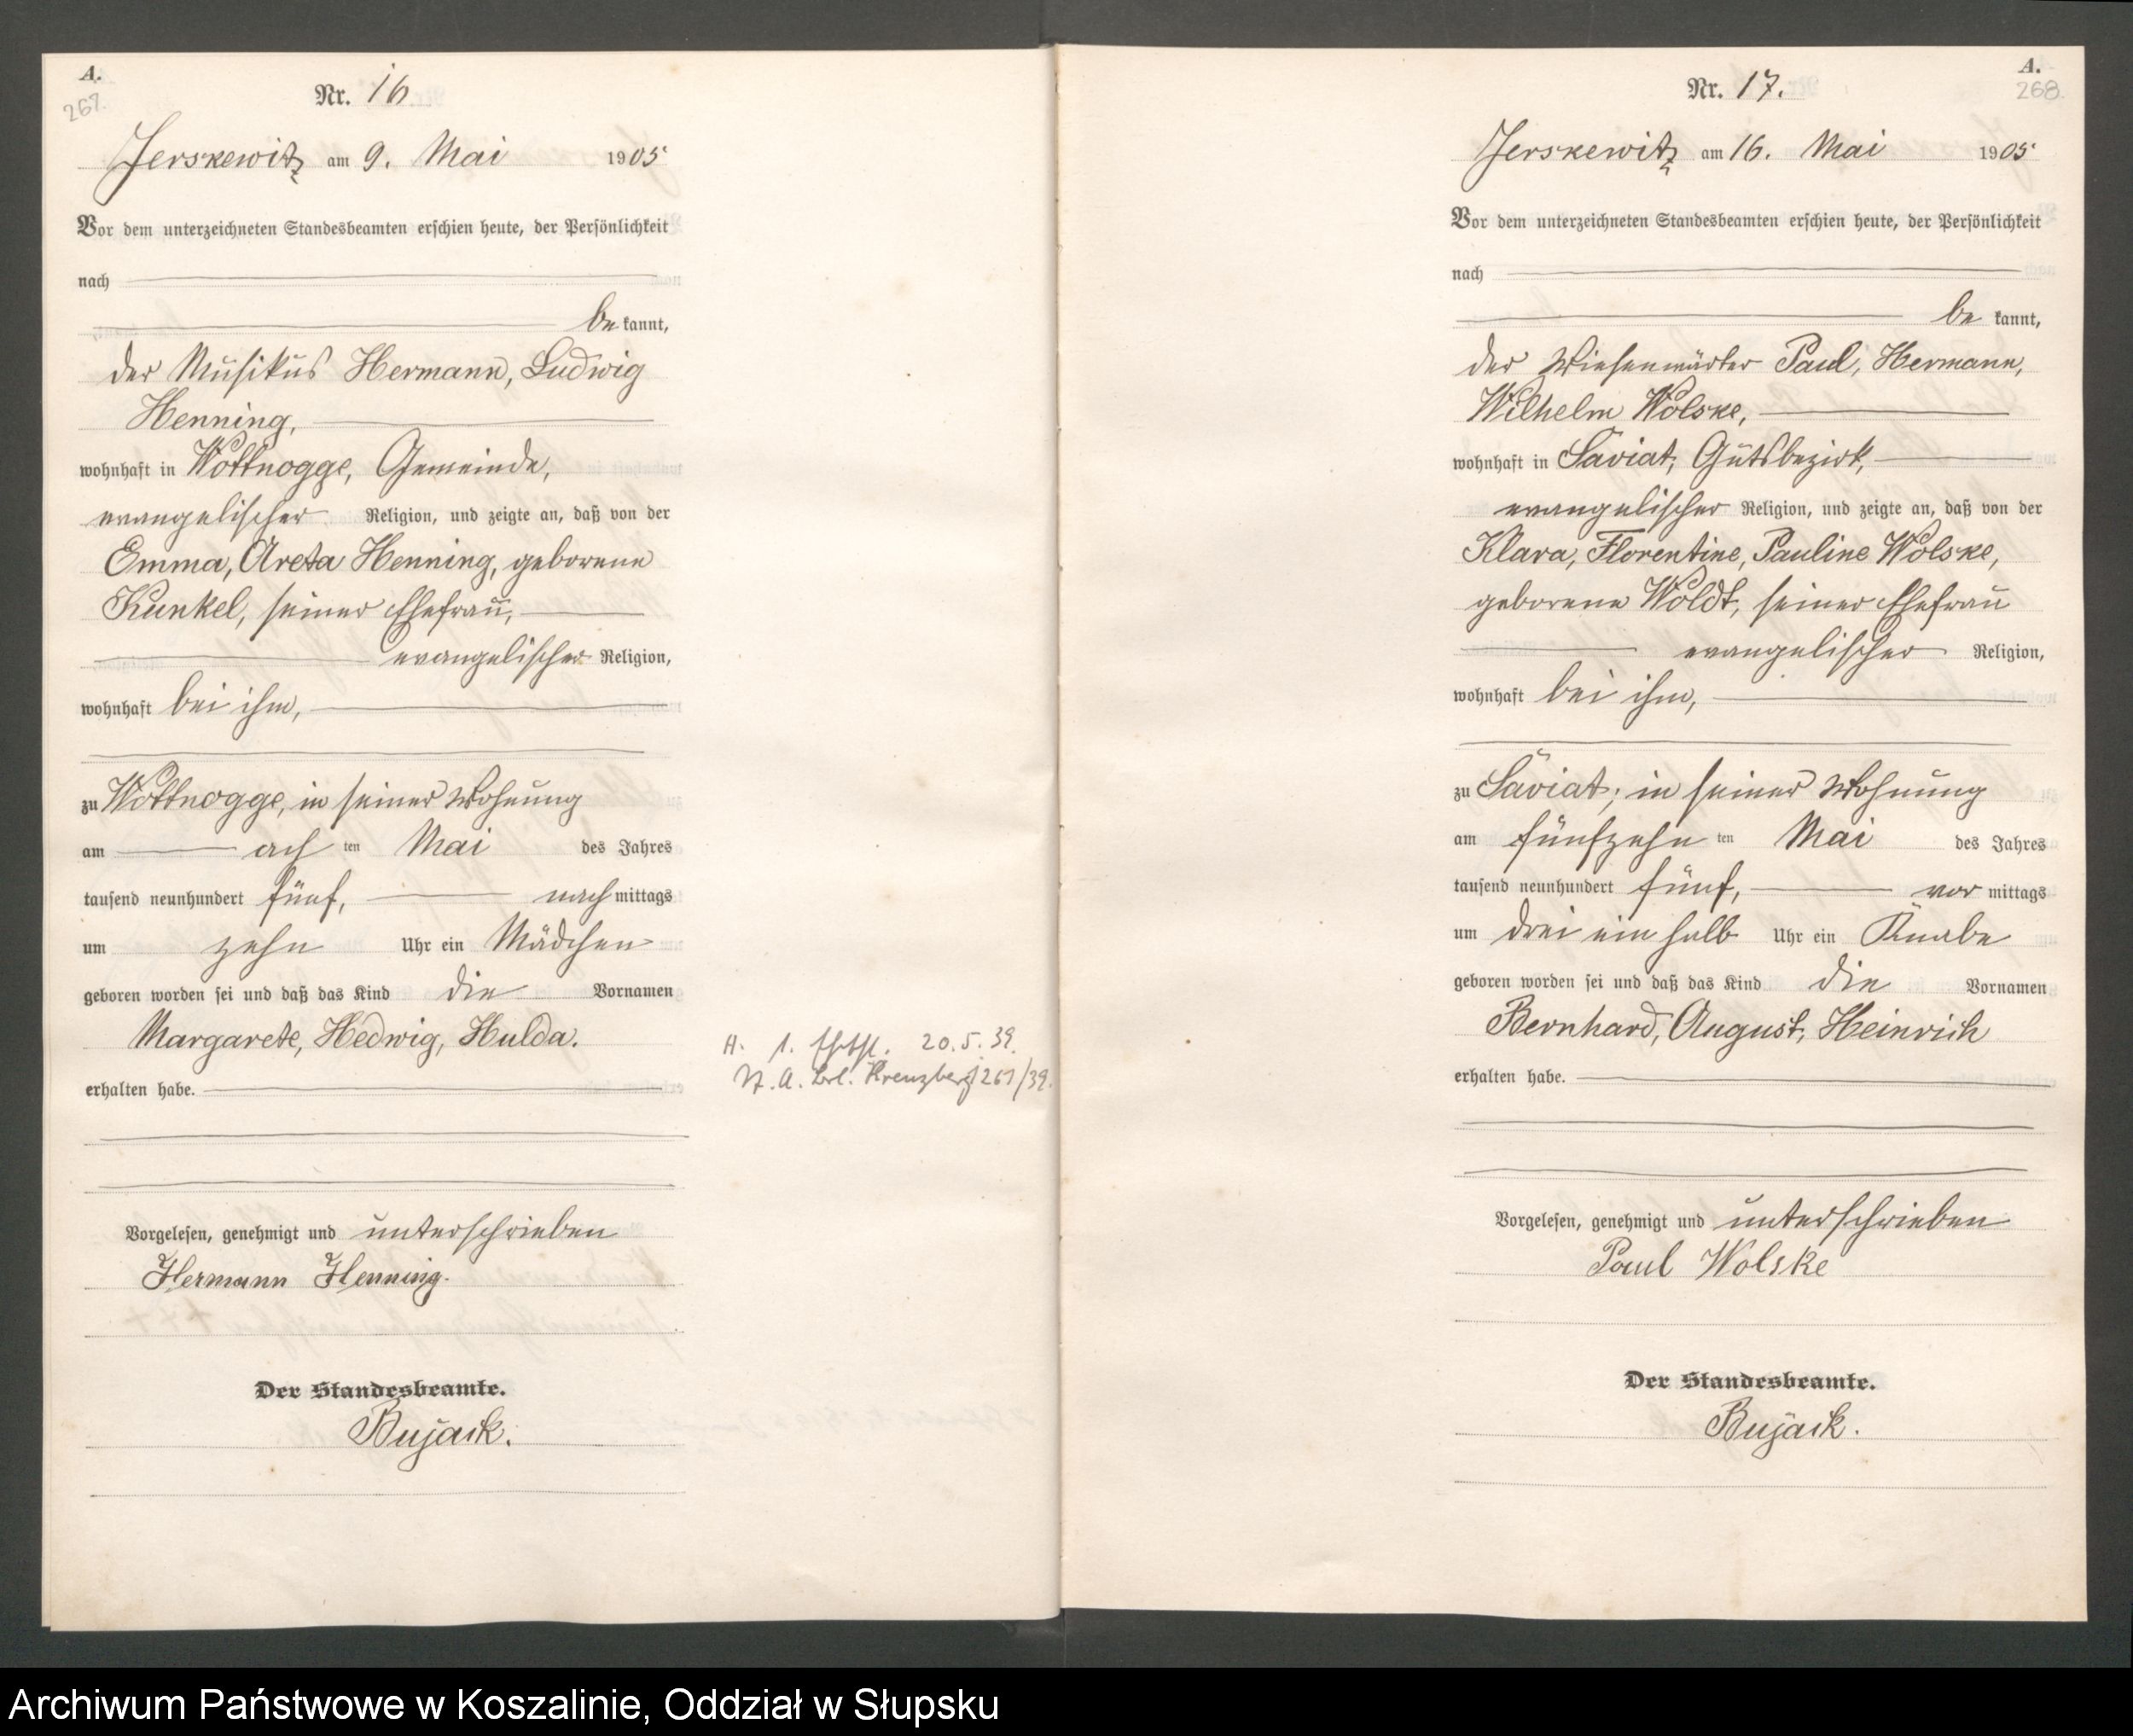 A.
267.
Nr. 16
Jerskewitz am 9. Mai 1905
Vor dem unterzeichneten Standesbeamten erschien heute, der Persönlichkeit
nach
be kannt,
der Musikus Hermann, Ludwig
Henning,
wohnhaft in Wottnogge, Gemeinde,
evangelischer Religion, und zeigte an, daß von der
Emma, Areta Henning, geborene
Kunkel, seiner Ehefrau,
evangelischer Religion,
wohnhaft bei ihm,
zu Wottnogge, in seiner Wohnung
am ach ten Mai des Jahres
tausend neunhundert fünf, nach mittags
um zehn Uhr ein Mädchen
geboren worden sei und daß das Kind die Vornamen
Margarete, Hedwig, Hulda.
erhalten habe.
H. 1. 20.5.39.
Kreuzberg 261/39.
Vorgelesen, genehmigt und unterschrieben
Hermann Henning.
Der Standesbeamte.
Bujack.
A.
268.
Nr. 17.
Jerskewitz am 16. Mai 1905
Vor dem unterzeichneten Standesbeamten erschien heute, der Persönlichkeit
nach
be kannt,
der Wiesenwärter Paul, Hermann,
Wilhelm Wolske,
wohnhaft in Saviat, Gutsbezirk,
evangelischer Religion, und zeigte an, daß von der
Klara, Florentine, Pauline Wolske,
geborene Woldt, seiner Ehefrau
evangelischer Religion,
wohnhaft bei ihm,
zu Saviat, in seiner Wohnung
am fünfzehn ten Mai des Jahres
tausend neunhundert fünf, vor mittags
um drei ein halb Uhr ein Knabe
geboren worden sei und daß das Kind die Vornamen
Bernhard, August, Heinrich
erhalten habe.
Vorgelesen, genehmigt und unterschrieben
Paul Wolske
Der Standesbeamte.
Bujack.
Archiwum Państwowe w Koszalinie, Oddział w Słupsku